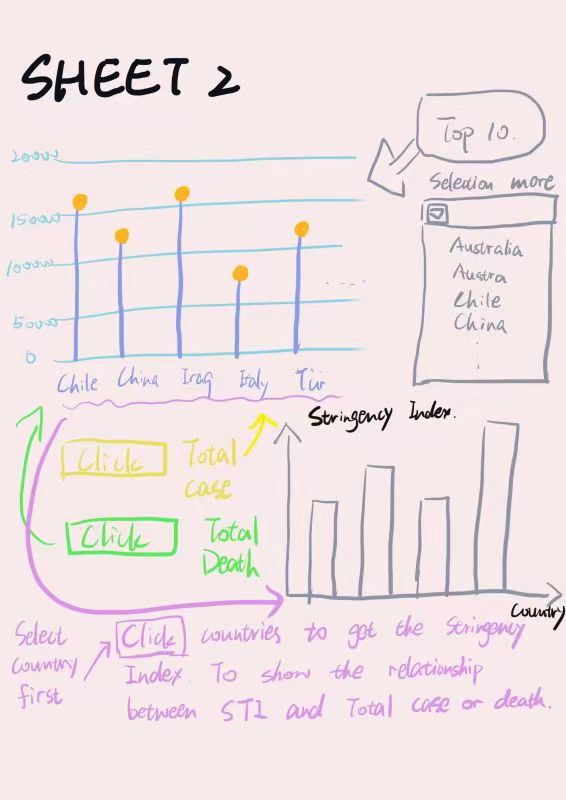 SHEET 2
Top 10.
Selection more
Australia
Austra
Chile
China
20000
15000
10000
5000
0
Chile China Iraq Italy Tur
Stringency Index.
Click Total
case
Click Total
Death
Country
Select
country
first
Click countries to get the Stringency
Index. To show the relationship
between STI and Total case or death.